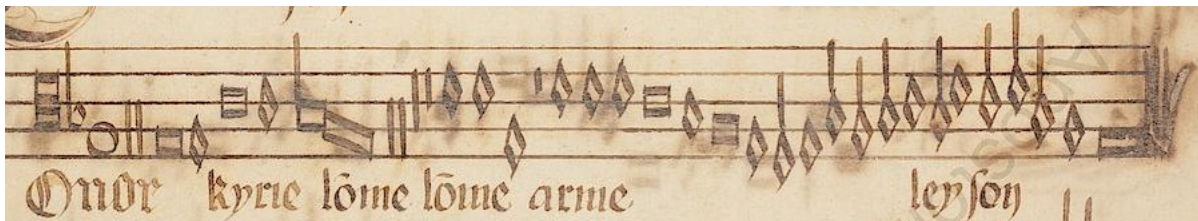 Tenor kyrie lõme lõme arme leyson